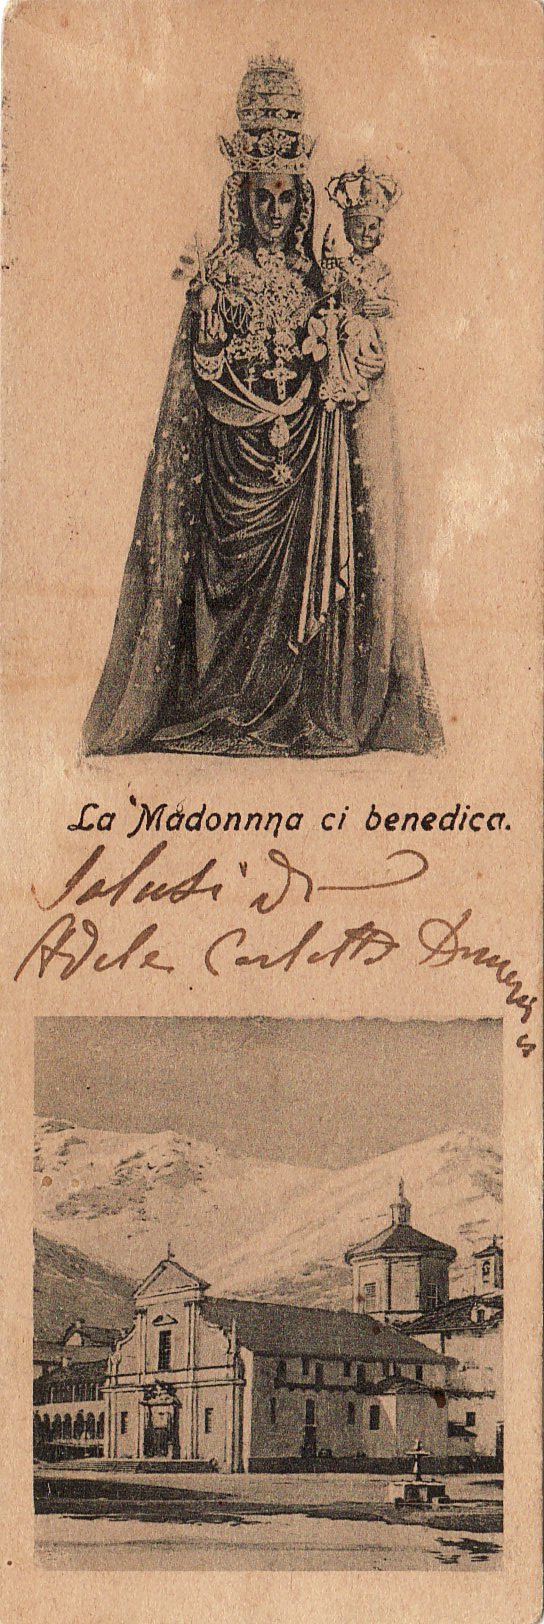 La Madonnna ci benedica.
Saluti di
Adele Carletti